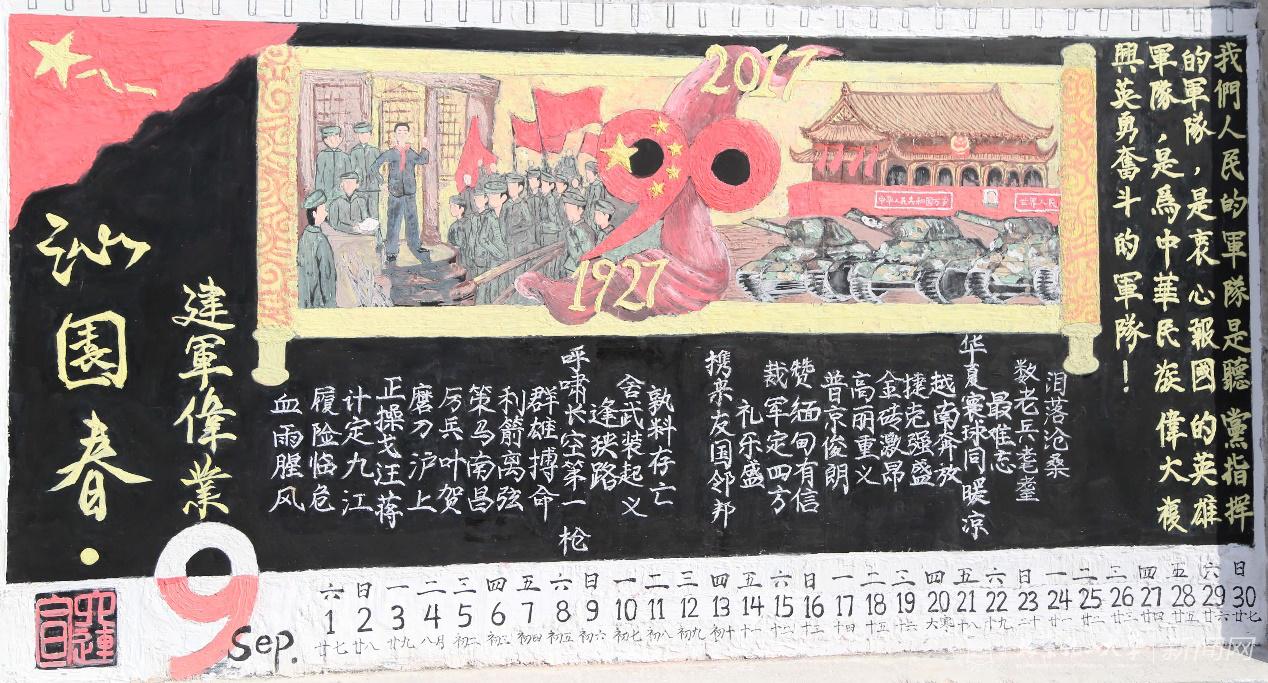 2017
90
1927
中华人民共和国万岁
世界人民
我們人民的軍隊是聽黨指揮
的軍隊，是衷心報國的英雄
軍隊，是爲中華民族偉大複
興英勇奮斗的軍隊！
沁園春·
建軍偉業
血雨腥风
履险临危
计定九江
正操戈汪蒋
磨刀沪上
厉兵叶贺
策马南昌
利箭离弦
群雄搏命
呼啸长空第一枪
逢狭路
舍武装起义
孰料存亡
携来友国邻邦
礼乐盛
裁军定四方
赞缅甸有信
普京俊朗
高丽重义
金砖激昂
捷克强盛
越南奔放
华夏寰球同暖凉
最难忘
数老兵耄耋
泪落沧桑
9 Sep.
六 日 一 二 三 四 五 六 日 一 二 三 四 五 六 日 一 二 三 四 五 六 日 一 二 三 四 五 六 日
1 2 3 4 5 6 7 8 9 10 11 12 13 14 15 16 17 18 19 20 21 22 23 24 25 26 27 28 29 30
廿七 廿八 廿九 八月 初二 初三 初四 初五 初六 初七 初八 初九 初十 十一 十二 十三 十四 十五 十六 大寒 十八 十九 二十 廿一 廿二 廿三 廿四 廿五 廿六 廿七
新闻网